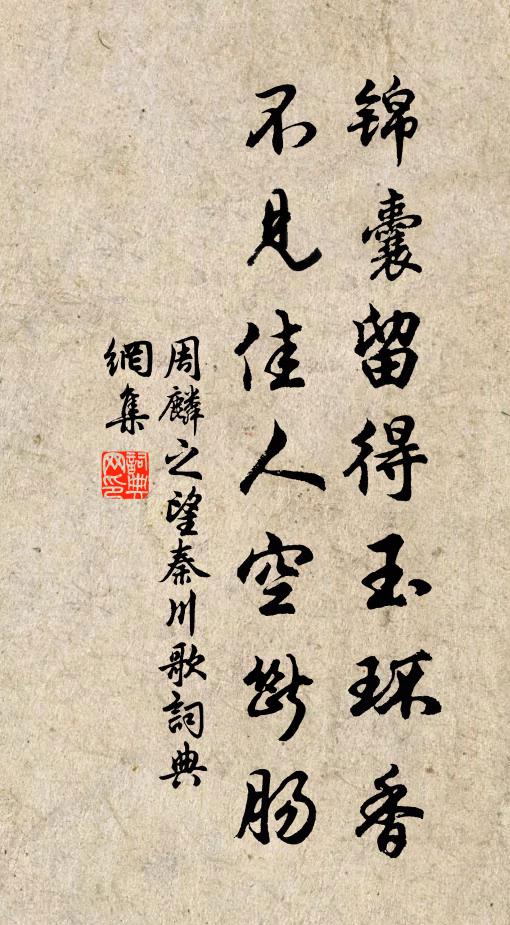 锦囊留得玉环香
不见佳人空断肠
周麟之望秦川歌詞典
網集
詞典网印